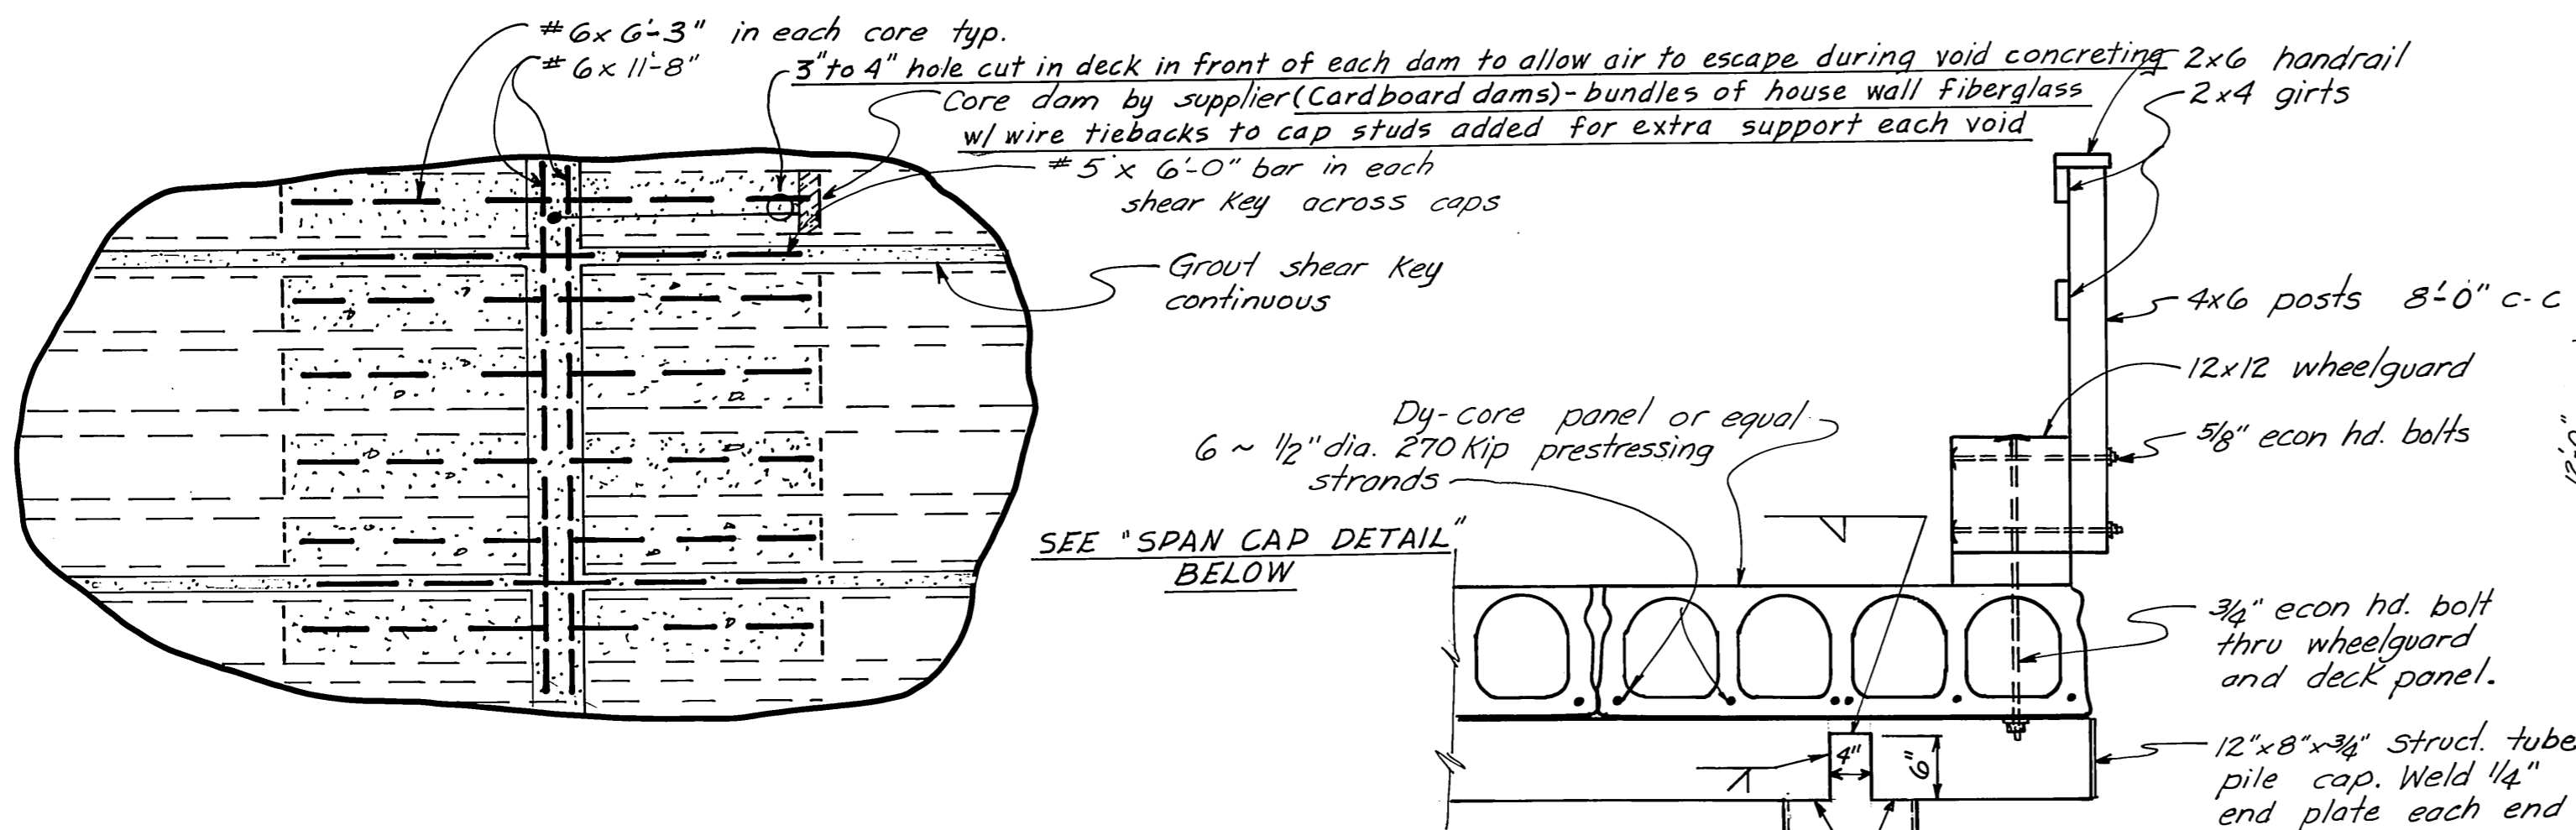 #6x 6'-3" in each core typ.
#6x 11'-8"
3" to 4" hole cut in deck in front of each dam to allow air to escape during void concreting
Core dam by supplier (Cardboard dams) - bundles of house wall fiberglass
w/ wire tiebacks to cap studs added for extra support each void
#5 x 6'-0" bar in each
shear key across caps
Grout shear key
continuous
2x6 handrail
2x4 girts
4x6 posts 8'-0" c-c
12x12 wheelguard
5/8" econ hd. bolts
12'-0"
Dy-core panel or equal
6 ~ 1/2" dia. 270 Kip prestressing
strands
SEE "SPAN CAP DETAIL"
BELOW
3/4" econ hd. bolt
thru wheelguard
and deck panel.
4"
6"
12"x8"x3/4" Struct. tube
pile cap. Weld 1/4"
end plate each end